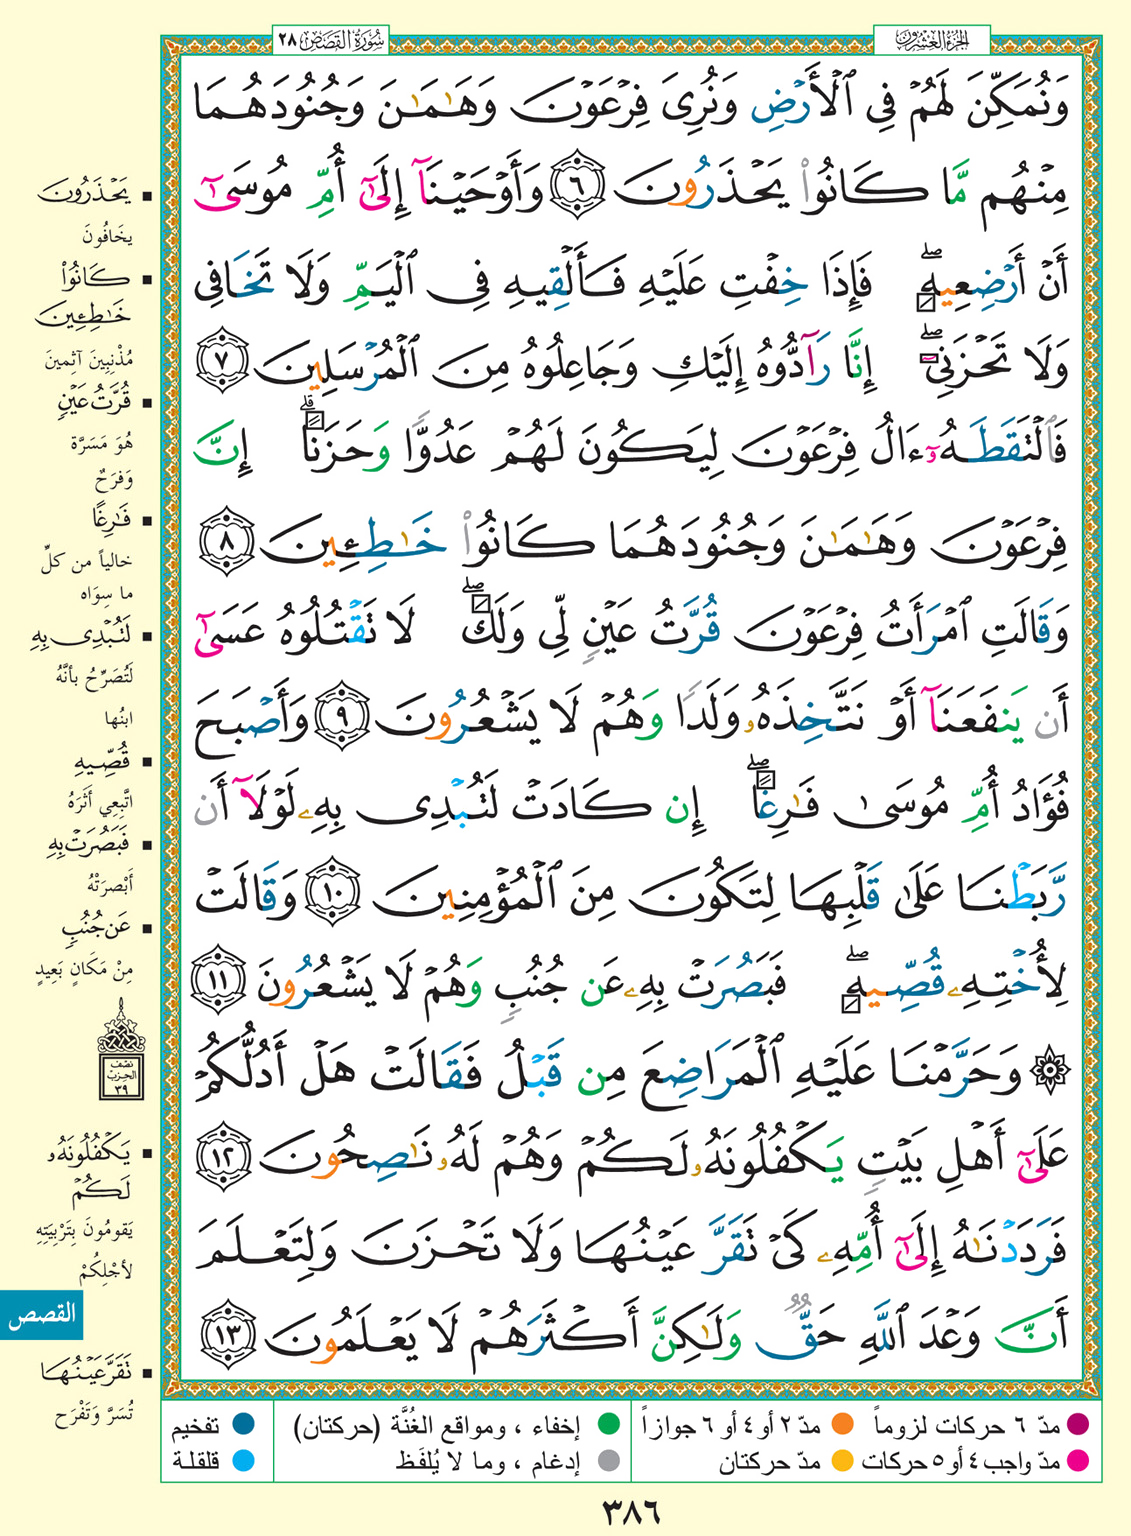 سُورَةُ القَصَصِ ٢٨
الجُزءُ العِشْرُونَ
وَنُمَكِّنَ لَهُمْ فِي ٱلْأَرْضِ وَنُرِىَ فِرْعَوْنَ وَهَٰمَٰنَ وَجُنُودَهُمَا
مِنْهُم مَّا كَانُوا۟ يَحْذَرُونَ ٦ وَأَوْحَيْنَآ إِلَىٰٓ أُمِّ مُوسَىٰٓ
أَنْ أَرْضِعِيهِ ۖ فَإِذَا خِفْتِ عَلَيْهِ فَأَلْقِيهِ فِى ٱلْيَمِّ وَلَا تَخَافِى
وَلَا تَحْزَنِىٓ ۖ إِنَّا رَآدُّوهُ إِلَيْكِ وَجَاعِلُوهُ مِنَ ٱلْمُرْسَلِينَ ٧
فَٱلْتَقَطَهُۥٓ ءَالُ فِرْعَوْنَ لِيَكُونَ لَهُمْ عَدُوًّا وَحَزَنًا ۗ إِنَّ
فِرْعَوْنَ وَهَٰمَٰنَ وَجُنُودَهُمَا كَانُوا۟ خَٰطِـِٔينَ ٨
وَقَالَتِ ٱمْرَأَتُ فِرْعَوْنَ قُرَّتُ عَيْنٍ لِّى وَلَكَ ۖ لَا تَقْتُلُوهُ عَسَىٰٓ
أَن يَنفَعَنَآ أَوْ نَتَّخِذَهُۥ وَلَدًا وَهُمْ لَا يَشْعُرُونَ ٩ وَأَصْبَحَ
فُؤَادُ أُمِّ مُوسَىٰ فَٰرِغًا ۖ إِن كَادَتْ لَتُبْدِى بِهِۦ لَوْلَآ أَن
رَّبَطْنَا عَلَىٰ قَلْبِهَا لِتَكُونَ مِنَ ٱلْمُؤْمِنِينَ ١٠ وَقَالَتْ
لِأُخْتِهِۦ قُصِّيهِ ۖ فَبَصُرَتْ بِهِۦ عَن جُنُبٍ وَهُمْ لَا يَشْعُرُونَ ١١
۞ وَحَرَّمْنَا عَلَيْهِ ٱلْمَرَاضِعَ مِن قَبْلُ فَقَالَتْ هَلْ أَدُلُّكُمْ
عَلَىٰٓ أَهْلِ بَيْتٍ يَكْفُلُونَهُۥ لَكُمْ وَهُمْ لَهُۥ نَٰصِحُونَ ١٢
فَرَدَدْنَٰهُ إِلَىٰٓ أُمِّهِۦ كَىْ تَقَرَّ عَيْنُهَا وَلَا تَحْزَنَ وَلِتَعْلَمَ
أَنَّ وَعْدَ ٱللَّهِ حَقٌّ وَلَٰكِنَّ أَكْثَرَهُمْ لَا يَعْلَمُونَ ١٣
يَحْذَرُونَ
يخَافُونَ
كَانُوا۟
خَٰطِـِٔينَ
مُذْنِبِينَ آثِمِينَ
قُرَّتُ عَيْنٍ
هُوَ مَسَرَّة
وَفَرَحٌ
فَٰرِغًا
خالياً من كلِّ
ما سِوَاه
لَتُبْدِى بِهِ
لَتُصَرِّحُ بأنَّهُ
ابنُها
قُصِّيهِ
اتَّبِعِي أَثَرَهُ
فَبَصُرَتْ بِهِ
أَبْصرَتْهُ
عَن جُنُبٍ
مِنْ مَكَانٍ بَعِيدٍ
نصف
الحزب
٣٩
يَكْفُلُونَهُۥ
لَكُمْ
يَقومُونَ بِتَرْبِيَتِهِ
لأجْلِكُمْ
القصص
تَقَرَّ عَيْنُهَا
تُسَرَّ وَتَفْرَح
مدّ ٦ حركات لزوماً
مدّ ٢ أو ٤ أو ٦ جوازاً
إخفاء ، ومواقع الغُنَّة (حركتان)
تفخيم
مدّ واجب ٤ أو ٥ حركات
مدّ حركتان
إدغام ، وما لا يُلفَظ
قلقلة
٣٨٦